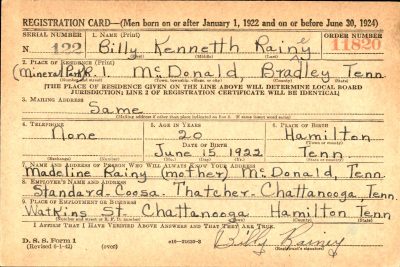 REGISTRATION CARD—(Men born on or after January 1, 1922 and on or before June 30, 1924)
SERIAL NUMBER 1. NAME (Print) ORDER NUMBER
N 122 Billy Kennetth Rainey 11820
2. PLACE OF RESIDENCE (Print)
(Mineral Park) R. 1. McDonald, Bradley Tenn
(Town, township, village, or city) (County) (State)
[THE PLACE OF RESIDENCE GIVEN ON THE LINE ABOVE WILL DETERMINE LOCAL BOARD
JURISDICTION; LINE 2 OF REGISTRATION CERTIFICATE WILL BE IDENTICAL]
3. MAILING ADDRESS
Same
[Mailing address if other than place indicated on line 2. If same insert word same]
4. TELEPHONE 5. AGE IN YEARS 6. PLACE OF BIRTH
None 20 Hamilton
DATE OF BIRTH (Town or county)
June 15, 1922 Tenn
(Exchange) (Number) (Mo.) (Day) (Yr.) (State or country)
7. NAME AND ADDRESS OF PERSON WHO WILL ALWAYS KNOW YOUR ADDRESS
Madeline Rainy (mother) McDonald, Tenn.
8. EMPLOYER'S NAME AND ADDRESS
Standard. Coosa. Thatcher. Chattanooga, Tenn.
9. PLACE OF EMPLOYMENT OR BUSINESS
Watkins St. Chattanooga Hamilton Tenn
(Number and street or R. F. D. number) (Town) (County) (State)
I AFFIRM THAT I HAVE VERIFIED ABOVE ANSWERS AND THAT THEY ARE TRUE.
D. S. S. Form 1
(Revised 6-1-42) (over) Billy Rainey
(Registrant's signature)